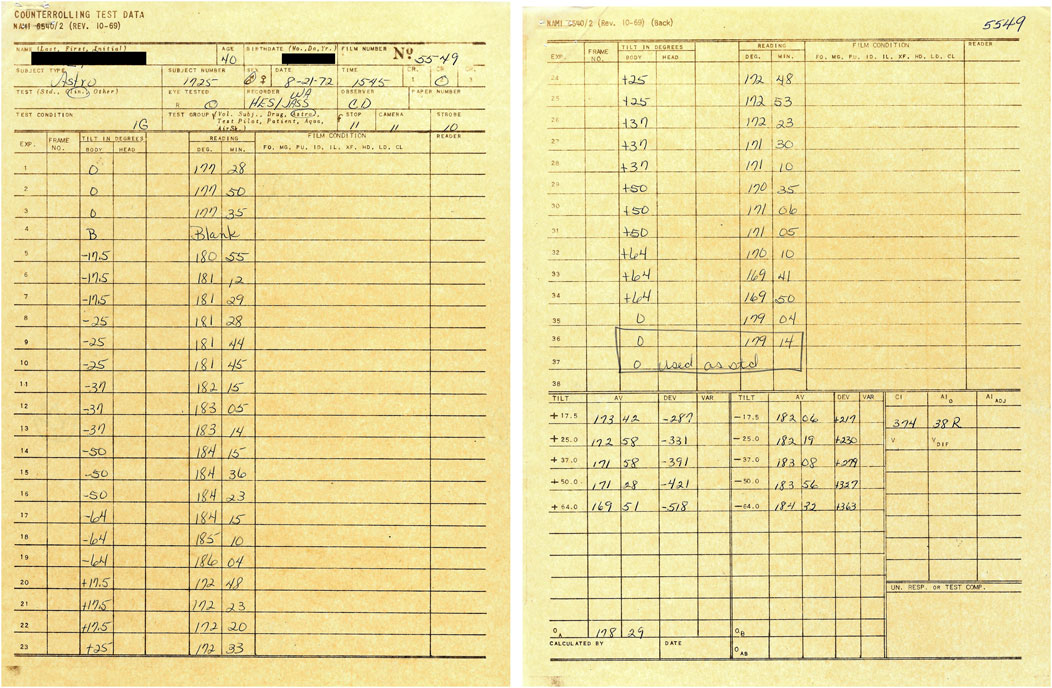 COUNTERROLLING TEST DATA
NAMI 6540/2 (REV. 10-69)
NAME (Last, First, Initial) AGE BIRTHDATE (Mo., Da, Yr.) FILM NUMBER
40 No 5549
SUBJECT TYPE SUBJECT NUMBER SEX DATE TIME CR. CR. CR.
Astro 1725 ♂ ♀ 8-21-72 1545 1 0 3
TEST (Std., Other) EYE TESTED RECORDER OBSERVER PAPER NUMBER
R O HES/JASS WA CD
TEST CONDITION TEST GROUP (Vol. Subj., Drug, Astro, Test Pilot, Patient, Aqua, AirSk.) f STOP CAMERA STROBE
1G 11 11 10
EXP. FRAME NO. TILT IN DEGREES READING FILM CONDITION READER
BODY HEAD DEG. MIN. FO, MG, PU, ID, IL, XF, HD, LD, CL
1 0 177 28
2 0 177 50
3 0 177 35
4 B Blank
5 -17.5 180 55
6 -17.5 181 12
7 -17.5 181 29
8 -25 181 28
9 -25 181 44
10 -25 181 45
11 -37 182 15
12 -37 183 05
13 -37 183 14
14 -50 184 15
15 -50 184 36
16 -50 184 23
17 -64 184 15
18 -64 185 10
19 -64 186 04
20 +17.5 172 48
21 +17.5 172 23
22 +17.5 172 20
23 +25 172 33
NAMI 6540/2 (Rev. 10-69) (Back)
5549
EXP. FRAME NO. TILT IN DEGREES READING FILM CONDITION READER
BODY HEAD DEG. MIN. FO, MG, PU, ID, IL, XF, HD, LD, CL
24 +25 172 48
25 +25 172 53
26 +37 172 23
27 +37 171 30
28 +37 171 10
29 +50 170 35
30 +50 171 06
31 +50 171 05
32 +64 170 10
33 +64 169 41
34 +64 169 50
35 0 179 04
36 0 179 14
37 0 used as std
38
TILT AV DEV VAR TILT AV DEV VAR CI AI O AI ADJ
+17.5 173 42 -287 -17.5 182 06 +217 374 38R
+25.0 172 58 -331 -25.0 182 19 +230 V V DIF
+37.0 171 58 -391 -37.0 183 08 +279
+50.0 171 28 -421 -50.0 183 56 +327
+64.0 169 51 -518 -64.0 184 32 +363
UN. RESP. OR TEST COMP.
O A 178 29 O B
CALCULATED BY DATE O AB